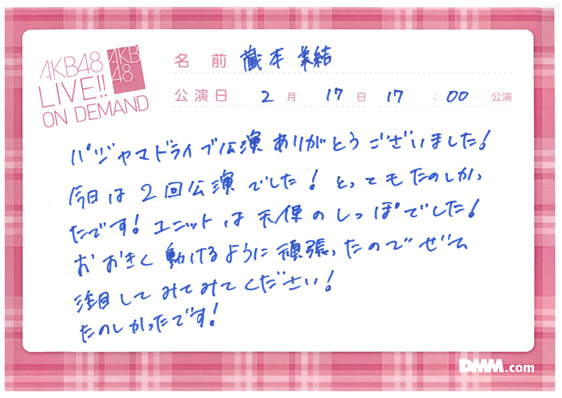 AKB48
LIVE!!
ON DEMAND
AKB
48
名前 蔵本 美結
公演日 2月 17日 17:00 公演
パジャマドライブ公演ありがとうございました!
今日は2回公演でした! とってもたのしかっ
たです! ユニットは天使のしっぽでした!
おおきく動けるように頑張ったのでぜひ
注目してみてみてください!
たのしかったです!
DMM.com